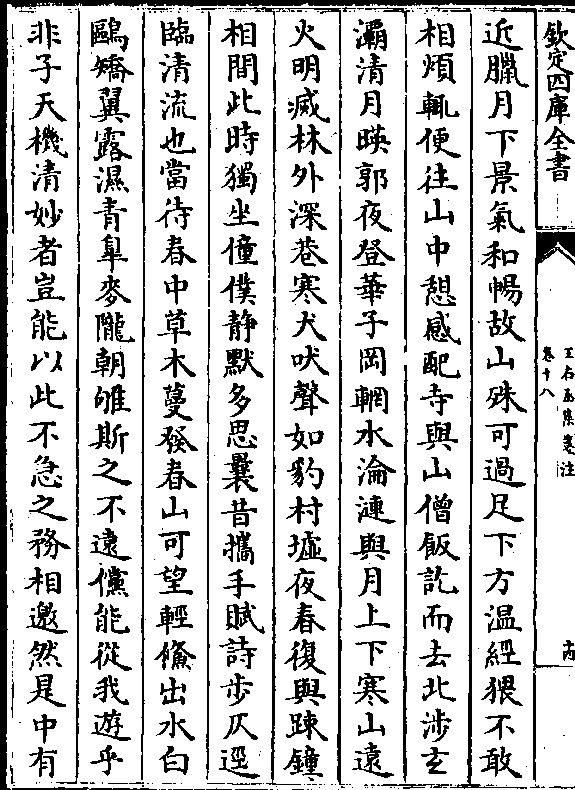 欽定四庫全書
王右丞集箋注
卷十八
近臘月下景氣和暢故山殊可過足下方温經猥不敢
相煩輒便往山中憩感配寺與山僧飯訖而去北渉𤣥
灞清月暎郭夜登華子岡輞水淪漣與月上下寒山遠
火明滅林外深巷寒犬吠聲如豹村墟夜舂復與踈鐘
相間此時獨坐僮僕静默多思曩昔攜手賦詩步仄逕
臨清流也當待春中草木蔓發春山可望輕鯈出水白
鷗矯翼露濕青臯麥隴朝雊斯之不遠儻能從我遊乎
非子天機清妙者豈能以此不急之務相邀然是中有